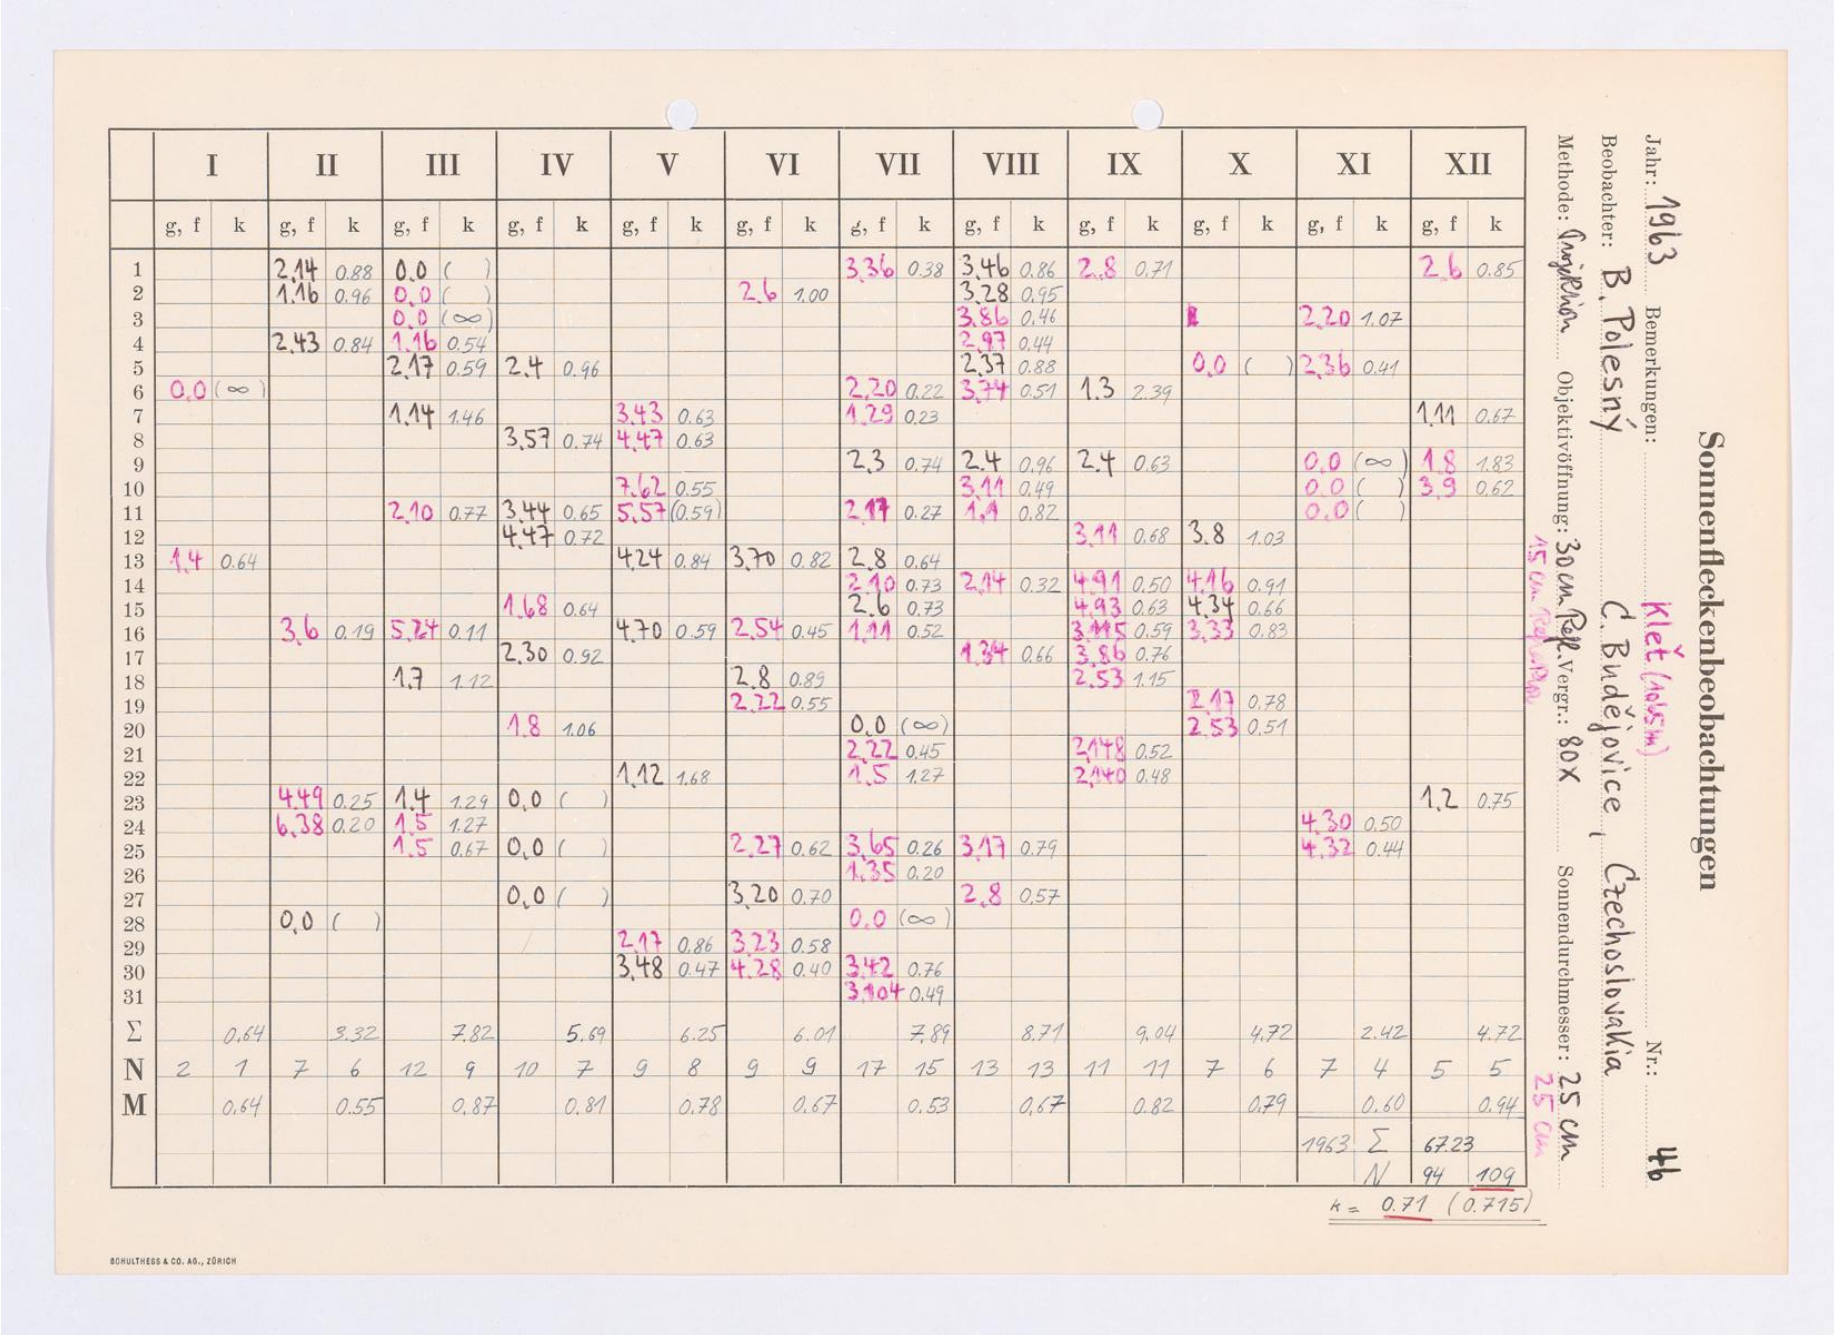 Sonnenfleckenbeobachtungen
Jahr: 1963 Bemerkungen: Kleť (1065m) Nr.: 46
Beobachter: B. Polesný Č. Budějovice, Czechoslovakia
Methode: Projektion Objektivöffnung: 30 cm Refl. Vergr.: 80X Sonnendurchmesser: 25 cm
15 cm 25 cm
I II III IV V VI VII VIII IX X XI XII
g, f k g, f k g, f k g, f k g, f k g, f k g, f k g, f k g, f k g, f k g, f k g, f k
1 2,14 0.88 0,0 ( ) 3,36 0.38 3,46 0.86 2,8 0.71 2,6 0.85
2 1,16 0.96 0,0 ( ) 2,6 1.00 3,28 0.95
3 0,0 (∞) 3,86 0.46 2,20 1.07
4 2,43 0.84 1,16 0.54 2,97 0.44
5 2,17 0.59 2,4 0.96 2,37 0.88 0,0 ( ) 2,36 0.41
6 0,0 (∞) 2,20 0.22 3,74 0.51 1,3 2.39
7 1,14 1.46 3,43 0.63 1,29 0.23 1,11 0.67
8 3,57 0.74 4,47 0.63
9 2,3 0.74 2,4 0.96 2,4 0.63 0,0 (∞) 1,8 1.83
10 7,62 0.55 3,11 0.49 0,0 ( ) 3,9 0.62
11 2,10 0.77 3,44 0.65 5,57 (0.59) 2,17 0.27 1,1 0.82 0,0 ( )
12 4,47 0.72 3,11 0.68 3,8 1.03
13 1,4 0.64 4,24 0.84 3,70 0.82 2,8 0.64
14 2,10 0.73 2,14 0.32 4,91 0.50 4,16 0.91
15 1,68 0.64 2,6 0.73 4,93 0.63 4,34 0.66
16 3,6 0.19 5,24 0.11 4,70 0.59 2,54 0.45 1,11 0.52 3,115 0.59 3,33 0.83
17 2,30 0.92 1,34 0.66 3,86 0.76
18 1,7 1.12 2,8 0.89 2,53 1.15
19 2,22 0.55 2,17 0.78
20 1,8 1.06 0,0 (∞) 2,53 0.51
21 2,22 0.45 2,148 0.52
22 1,12 1.68 1,5 1.27 2,140 0.48
23 4,49 0.25 1,4 1.29 0,0 ( ) 1,2 0.75
24 6,38 0.20 1,5 1.27 4,30 0.50
25 1,5 0.67 0,0 ( ) 2,27 0.62 3,65 0.26 3,17 0.79 4,32 0.44
26 1,35 0.20
27 0,0 ( ) 3,20 0.70 2,8 0.57
28 0,0 ( ) 0,0 (∞)
29 2,17 0.86 3,23 0.58
30 3,48 0.47 4,28 0.40 3,42 0.76
31 3,104 0.49
Σ 0.64 3.32 7.82 5.69 6.25 6.01 7.89 8.71 9.04 4.72 2.42 4.72
N 2 1 7 6 12 9 10 7 9 8 9 9 17 15 13 13 11 11 7 6 7 4 5 5
M 0.64 0.55 0.87 0.81 0.78 0.67 0.53 0.67 0.82 0.79 0.60 0.94
1963 Σ 67.23
N 94 109
k = 0.71 (0.715)
SCHULTHESS & CO. AG., ZÜRICH